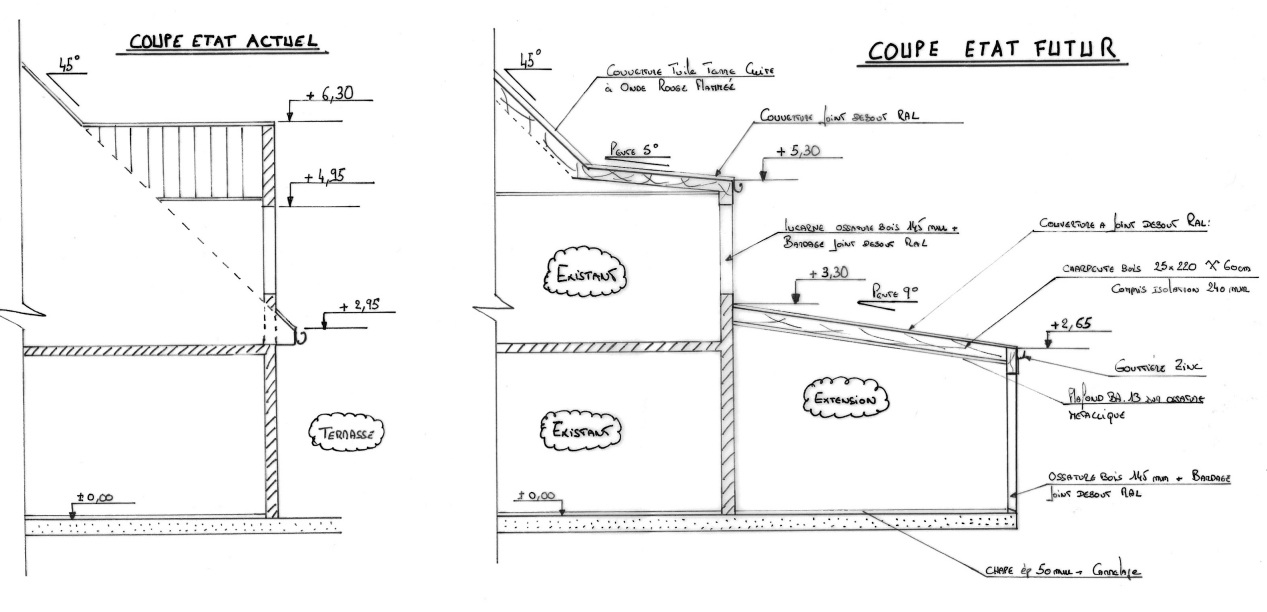 COUPE ETAT ACTUEL
45°
+ 6,30
+ 4,95
+ 2,95
TERRASSE
±0,00
COUPE ETAT FUTUR
45°
COUVERTURE TUILE TERRE CUITE
à ONDE ROUGE
COUVERTURE JOINT DEBOUT RAL
PENTE 5°
+ 5,30
LUCARNE OSSATURE BOIS 145 MM +
BARDAGE JOINT DEBOUT RAL
COUVERTURE A JOINT DEBOUT RAL:
CHARPENTE BOIS 25 x 220 X 60cm
COMPRIS ISOLATION 240 MM
EXISTANT
+ 3,30
PENTE 9°
+2,65
GOUTTIÈRE ZINC
PLAFOND BA.13 SUR OSSATURE
METALLIQUE
EXTENSION
EXISTANT
OSSATURE BOIS 145 MM + BARDAGE
JOINT DEBOUT RAL
±0,00
CHAPE ép 50 MM + CARRELAGE